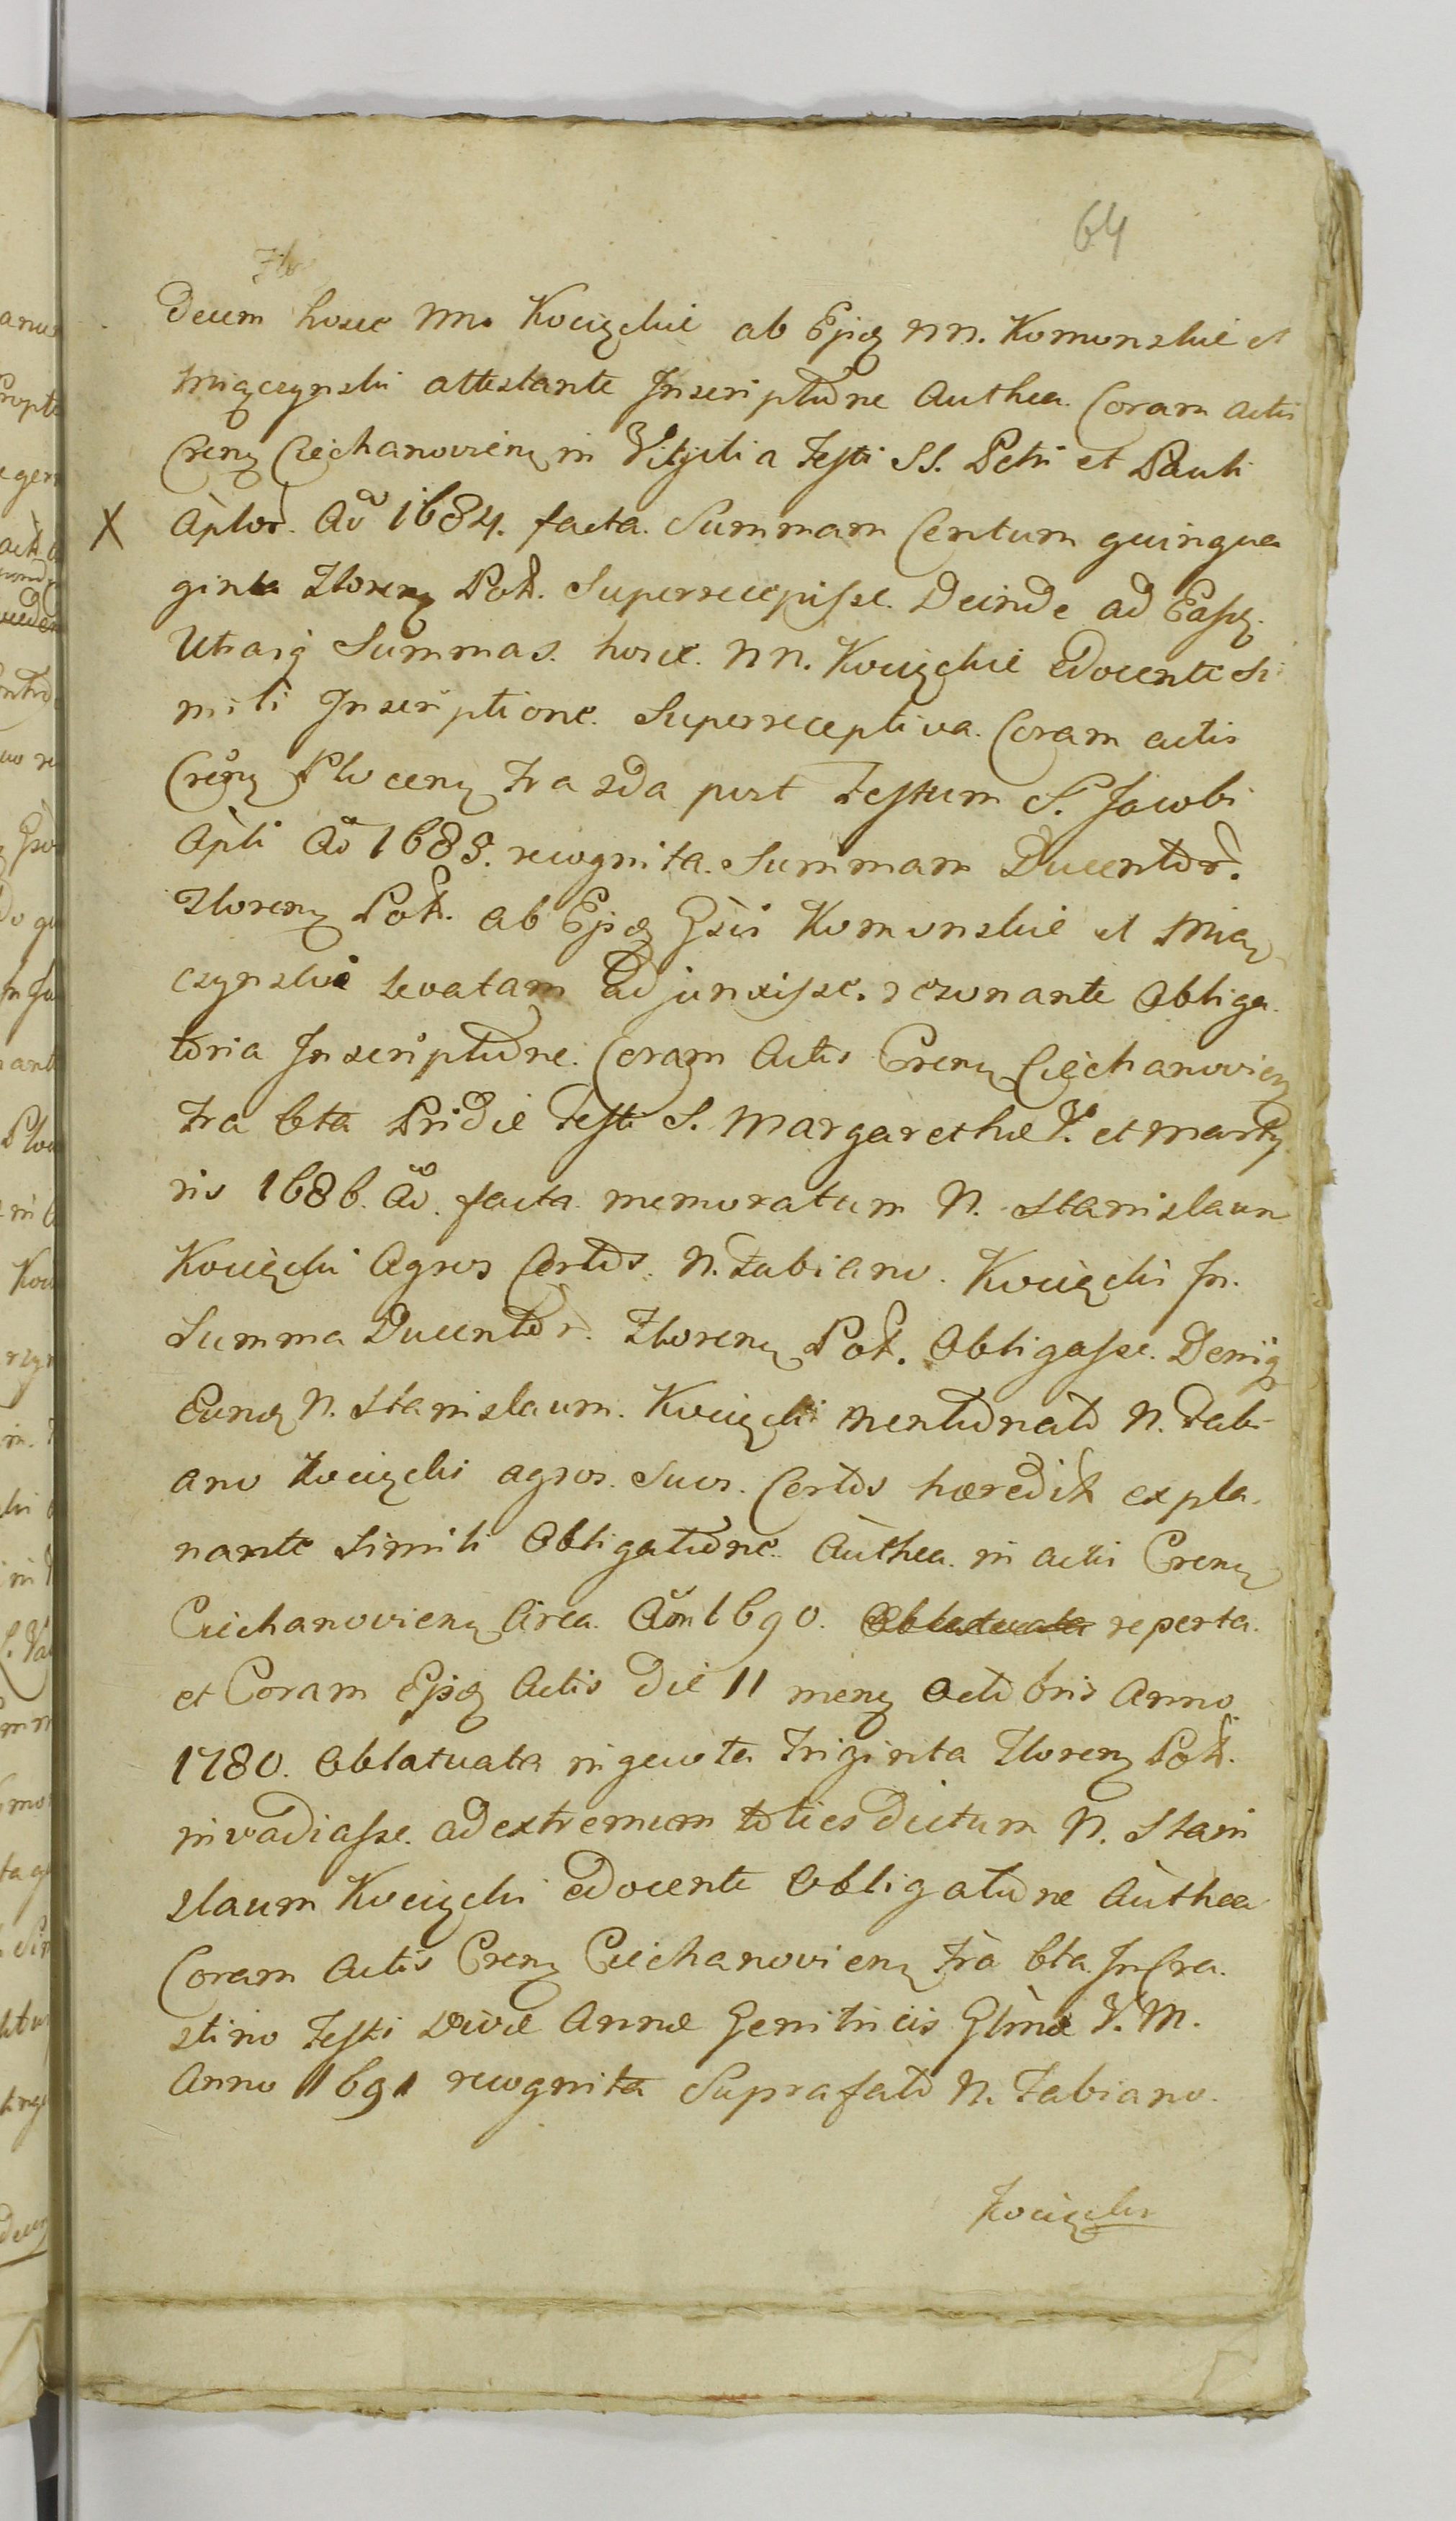 64
Deum hosce NN. Kocięckie ab Ejsdę NN. Komunskie et
Miączynski attestante Inscriptione Authea. Coram actis
Crenę Ciechanovienę in Vigilia Festi SS. Petri et Pauli
X Aplor. Aõ 1684. facta. Summam Centum quinqua
ginta Florenę Pol. Superrecepisse. Deinde ad Easdę.
Utrasq Summas. hosce. NN. Kocięckie edocente si
mili Inscriptione. Superreceptiva. Coram actis
Crenę Plocenę Fra 2da post Festum S. Jacobi
Apli Aõ 1685. recognita. Summam Ducentor.
Florenę Pol. ab Ejsdę Gsis Komunskie et Mią
czynskie levatam adjunxisse. resonante Obliga
toria Inscriptione. Coram Actis Crenę Ciechanovienę
Fra 6ta Pridie Festi S. Margarethæ V. et Marty
ris 1686. Aõ. facta memoratum N. Stanislaum
Kocięcki Agros Certos. N. Fabiano. Kocięcki In.
Summa Ducentor. Florenę Pol. Obligasse. Deniq
Eundę N. Stanislaum. Kocięcki mentionato N. Fabi
ano Kocięcki agros. Suos. Certos hæredit expla.
nante simili Obligatione. Authea. in actis Crenę
Ciechanovienę Circa. Aõm 1690. reperta.
et Coram Ejsdę Actis Die 11 menę Octobris Anno
1780. Oblatuata in quota Triginta Florenę Pol.
invadiasse. ad extremum toties dictum N. Stani
slaum Kocięcki edocente Obligatione Authea
Coram Actis Crenę Ciechanovienę Fra 6ta. In Cra.
stino Festi Divæ Annæ Genitricis Glmæ V. M.
Anno 1691 recognita Suprafato N. Fabiano.
Kocięcki